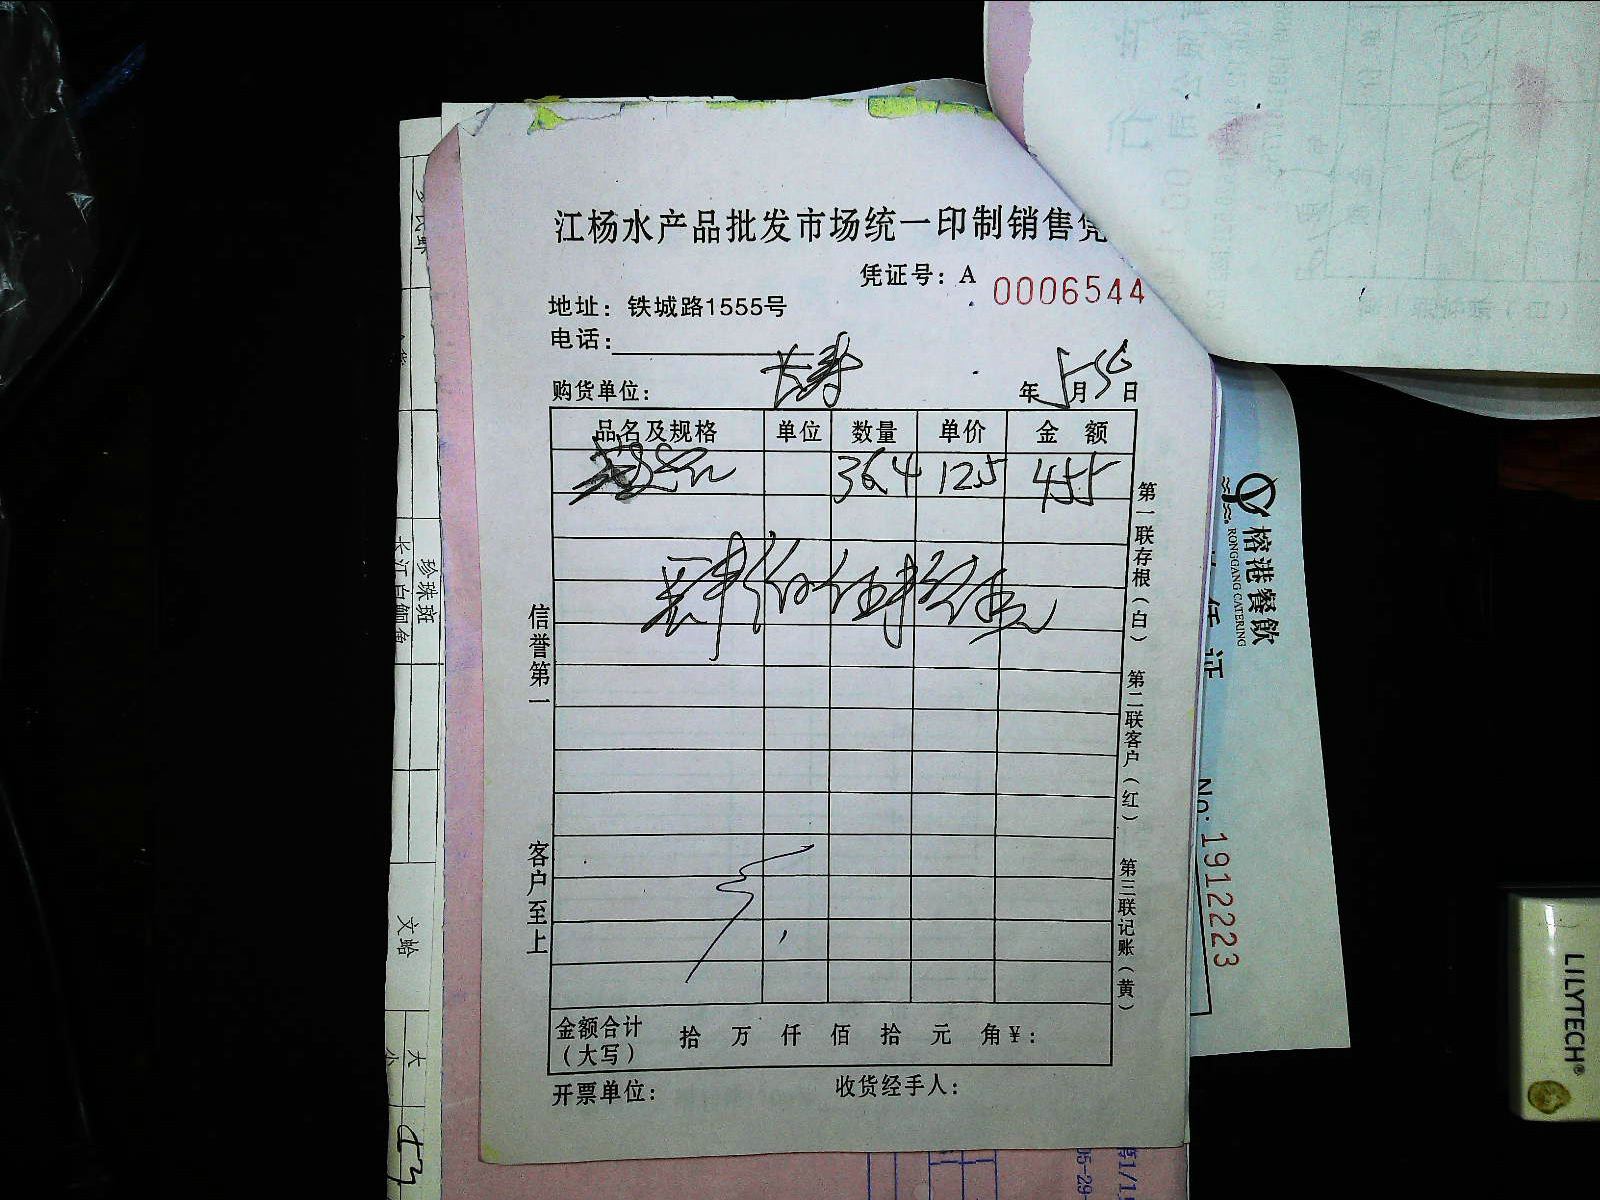 江杨水产品批发市场统一印制销售凭
凭证号：A 0006544
地址：铁城路1555号
电话：
购货单位：长寿 年5月 日
品名及规格 单位 数量 单价 金 额
36.4 12.5 455
肆佰伍拾伍元
信誉第一
客户至上
第一联存根（白）
第二联客户（红）
第三联记账（黄）
金额合计（大写） 拾 万 仟 佰 拾 元 角 ¥：
开票单位： 收货经手人：
榕港餐飲
RONGGANG CATERING
证
No. 1912223
LILYTECH®
珍珠斑
长江白鲴鱼
文蛤
大
小